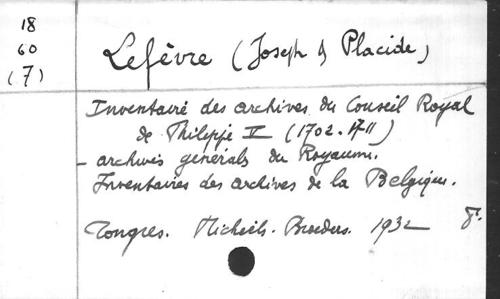 18
60
(7)
Lefèvre (Joseph & Placide)
Inventaire des archives du Conseil Royal
de Philippe V (1702-1711)
- archives générales du Royaume.
Inventaires des archives de la Belgique.
Tongres. Michiels-Broeders. 1932 8°.